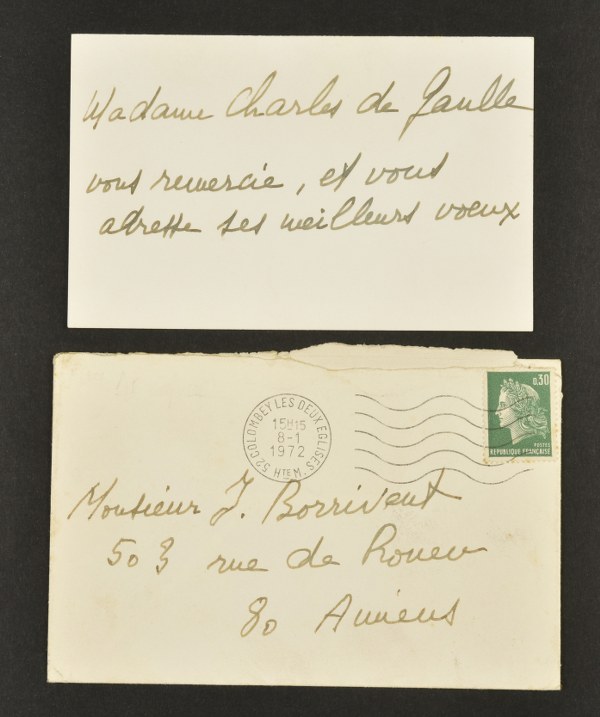 Madame Charles de Gaulle
vous remercie, et vous
adresse ses meilleurs voeux
52 COLOMBEY LES DEUX EGLISES
15H15
8-1
1972
HTE M.
0,30
POSTES
REPUBLIQUE FRANCAISE
Monsieur J. Borrivent
503 rue de Rouen
80 Amiens